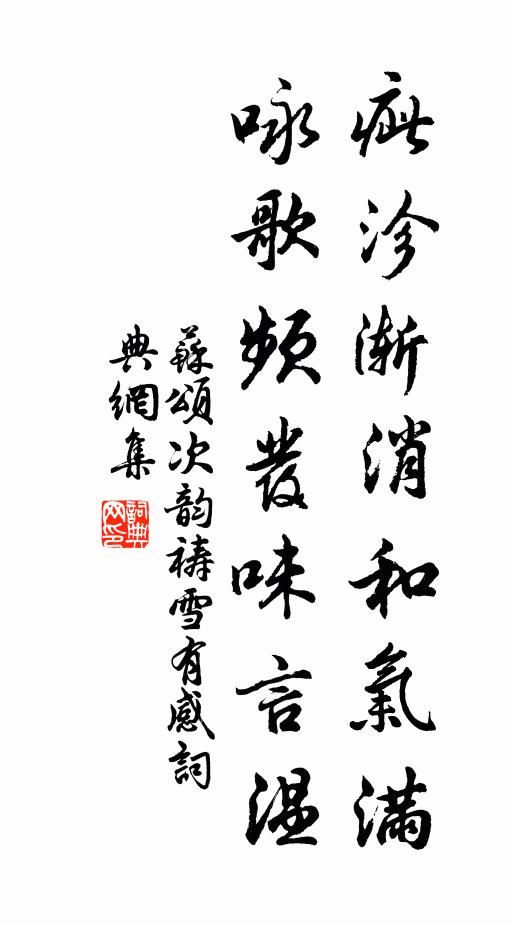 疵沴漸消和氣滿
咏歌頻發味言溫
蘇頌次韵禱雪有感詞
典網集
詞典
网印